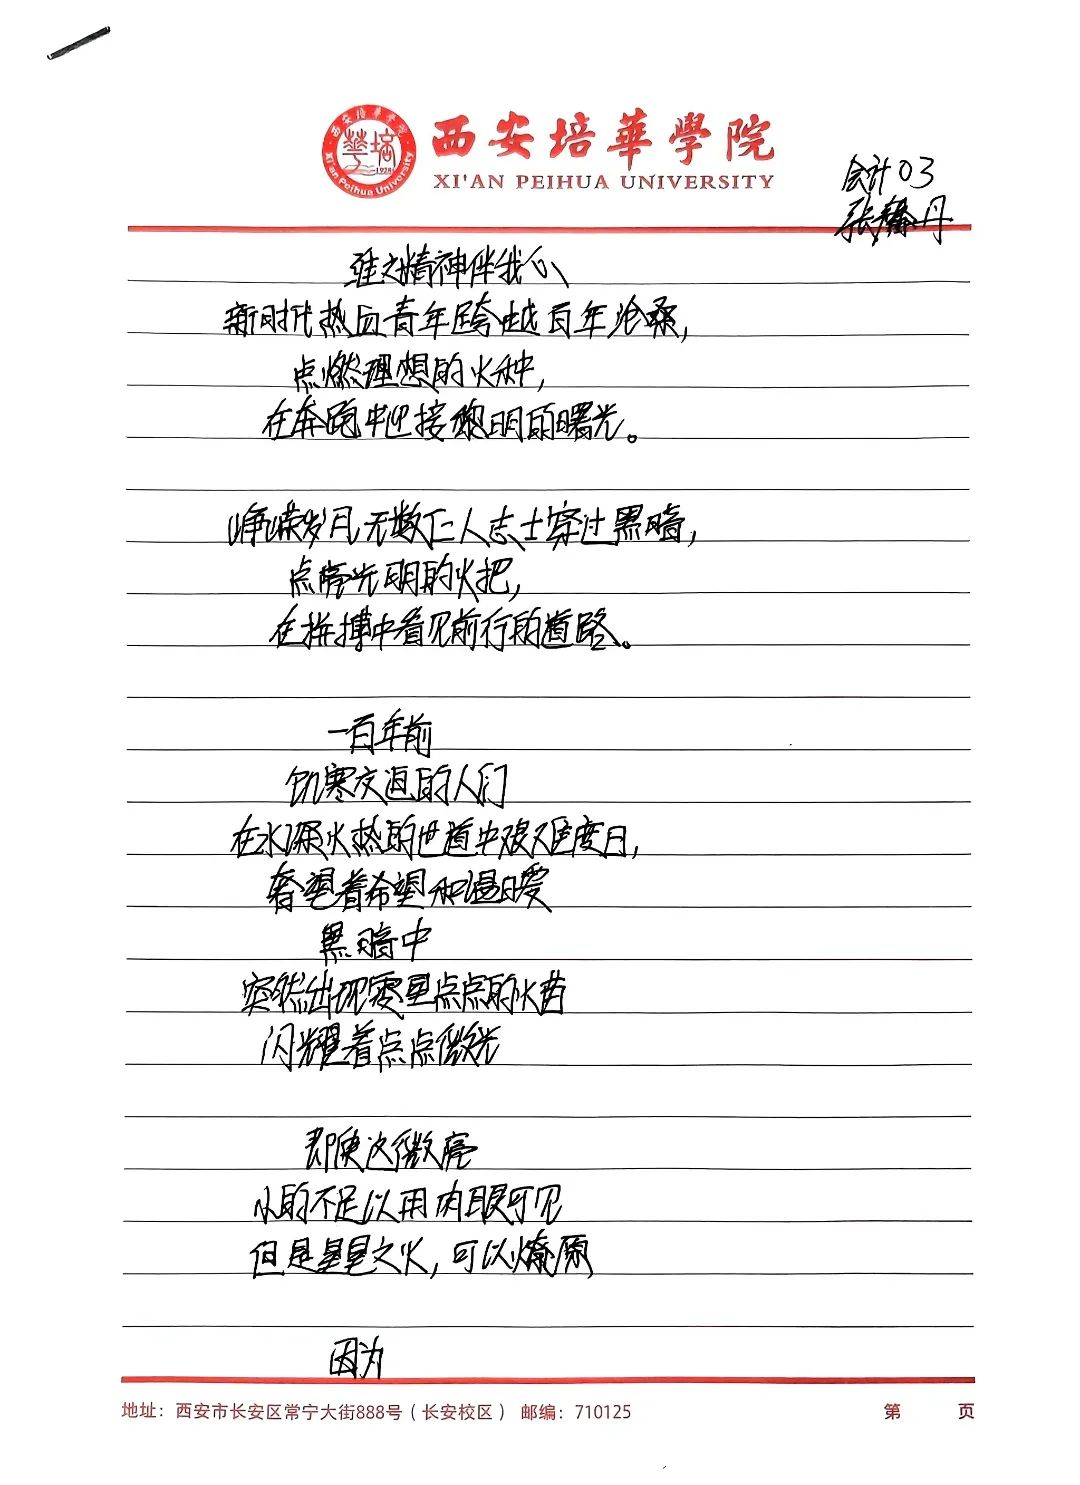 西安培華學院
XI'AN PEIHUA UNIVERSITY
西安培华学院
华培
1928
Xi'an Peihua University
会计03
张 丹
谁之精神伴我们
新时代热血青年跨越百年沧桑，
点燃理想的火种，
在奔跑中迎接黎明的曙光。
峥嵘岁月无数仁人志士穿过黑暗，
点亮光明的火把，
在拼搏中看见前行的道路。
一百年前
饥寒交迫的人们
在水深火热的世道中艰难度日，
奢望着希望和温暖
黑暗中
突然出现零星点点的火苗
闪耀着点点微光
即使这微亮
小的不足以用肉眼可见
但是星星之火，可以燎原
因为
地址：西安市长安区常宁大街888号（长安校区） 邮编：710125
第 页